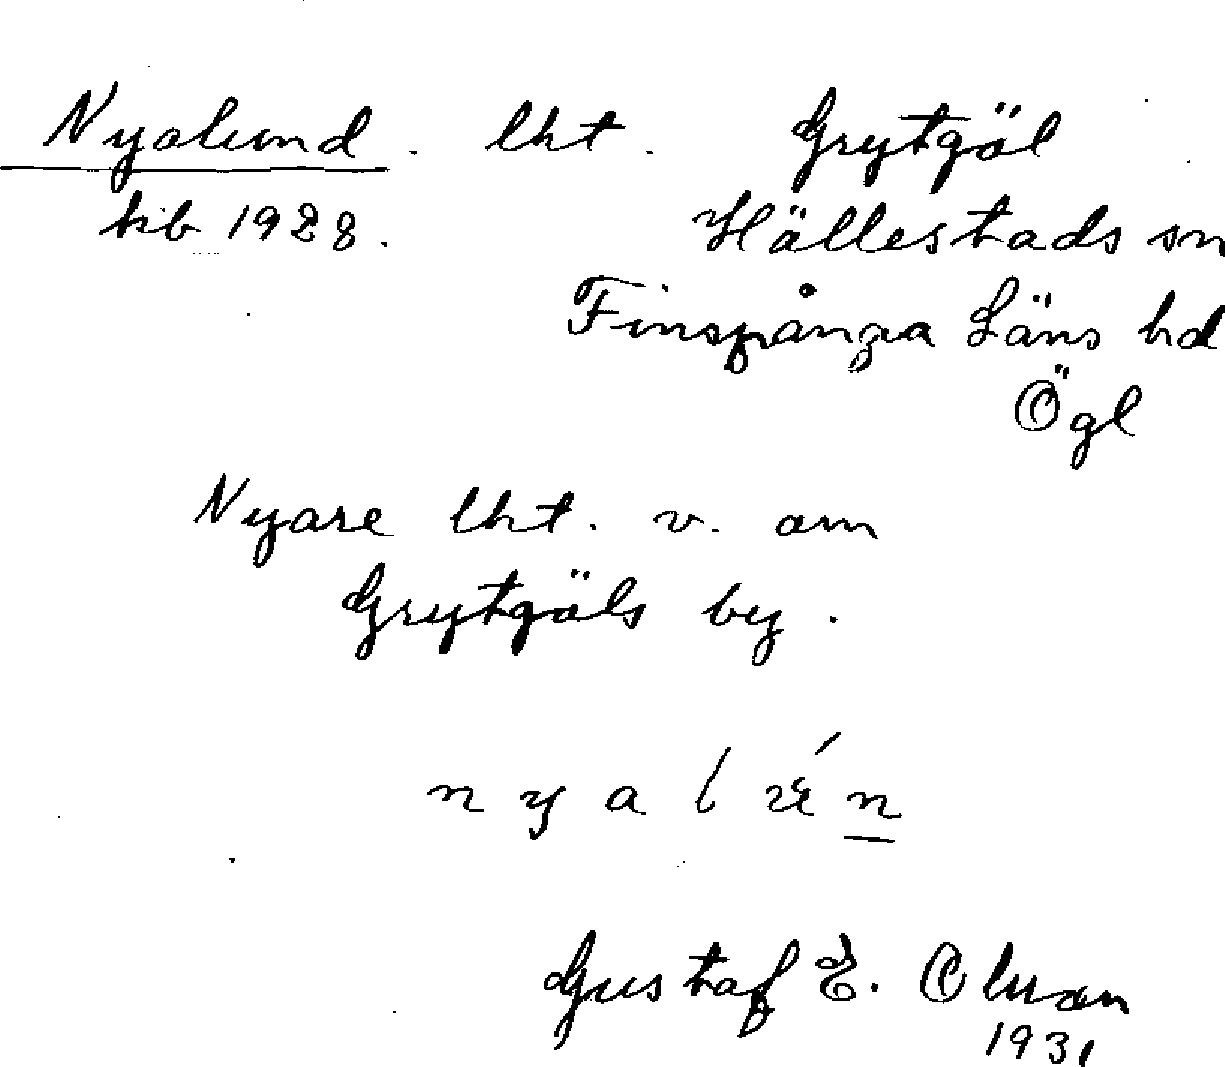 Nyalund. lht. Grytgöl
kb 1928. Hällestads sn
Finspånga Läns hd
Ögl
Nyare lht. v. om
Grytgöls by.
n y a l
Gustaf E. Olsson
1931